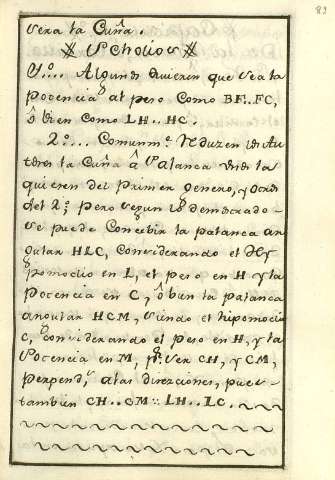 83
sera la Cuña.
Scholios
1º... Algunos quieren que sea la
potencia al peso como BF..FC,
ô bien como LH..HC.
2º... Comunmᵉ. Reduzen los Au-
tores la Cuña â Palanca unos la
quieren del Primer genero, y otros
del 2º; pero segun lo demostrado
se puede Concebir la palanca an-
gular HLC, considerando el Hy-
pomoclio en L, el peso en H y la
potencia en C, ô bien la palanca
angular HCM, siendo el hipomoclio
C, y considerando el peso en H, y la
Potencia en M, pʳ. ser CH, y CM,
perpendˢ. a las direcziones, pues
tambien CH..CM::LH..LC.